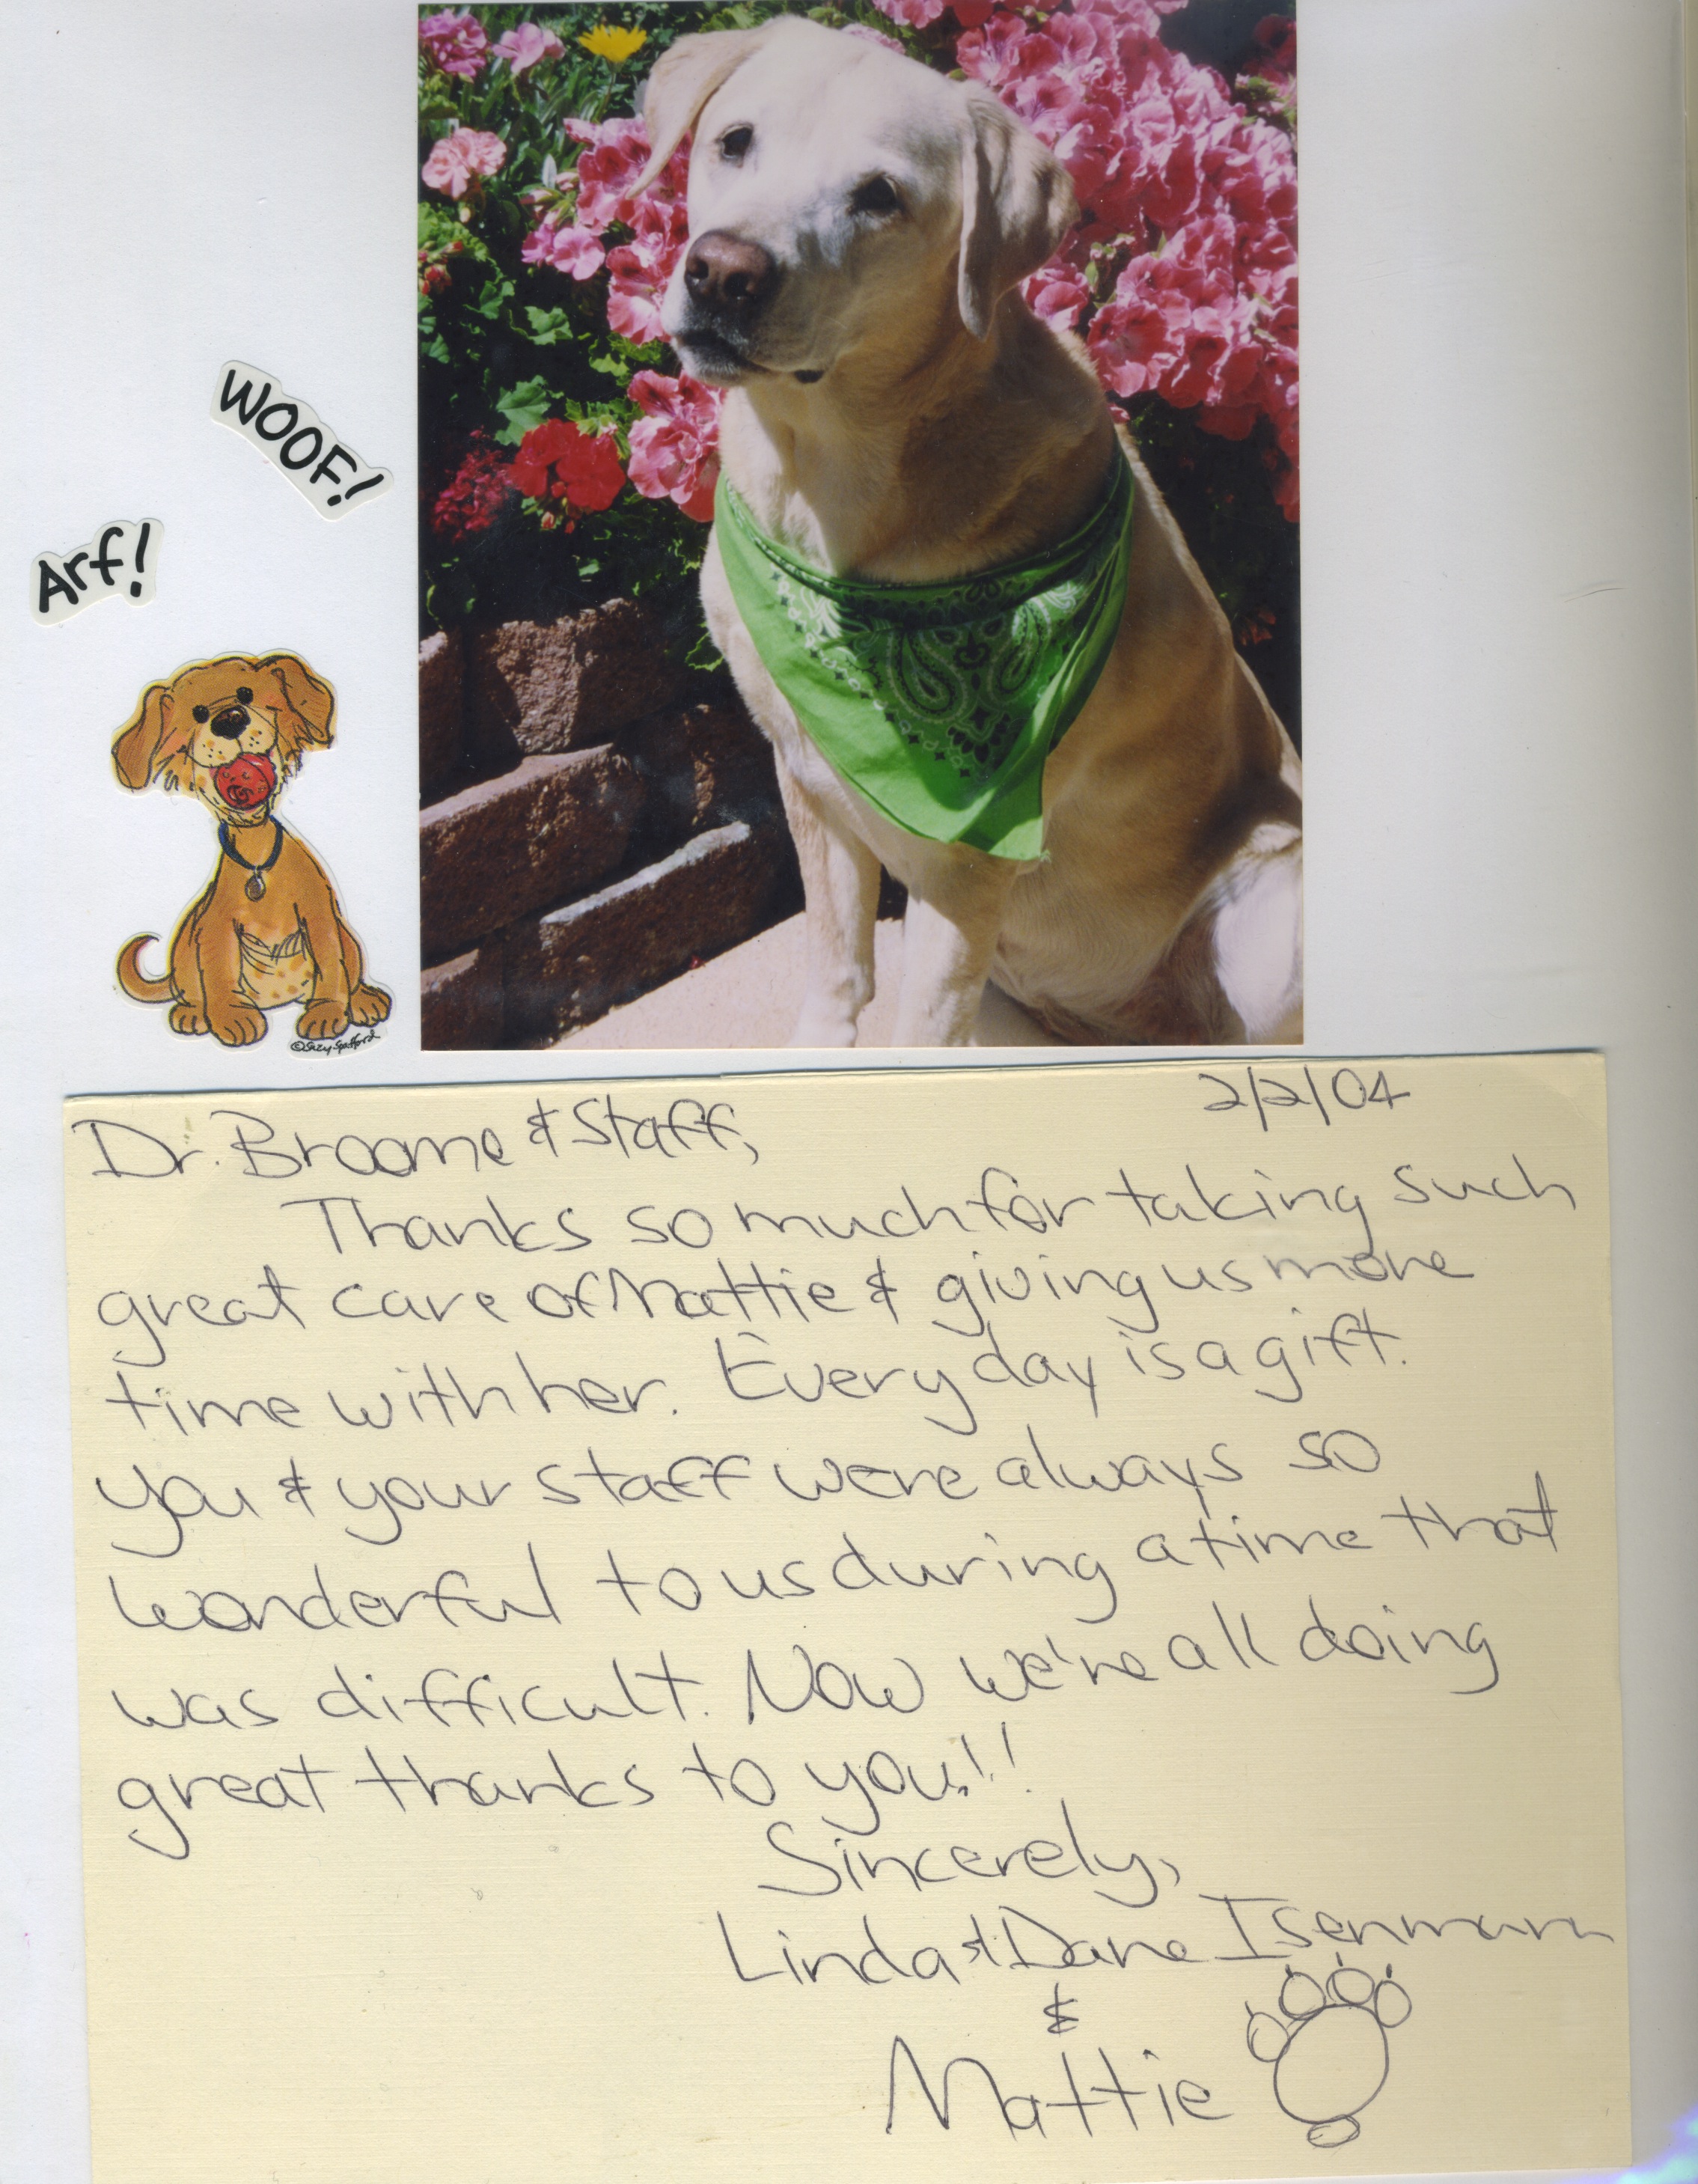 WOOF!
Arf!
©Suzy Spafford
2/2/04
Dr. Broome & Staff,
Thanks so much for taking such
great care of Mattie & giving us more
time with her. Every day is a gift.
You & your staff were always so
wonderful to us during a time that
was difficult. Now we're all doing
great thanks to you!!
Sincerely,
Linda & Dane Isenmann
&
Mattie